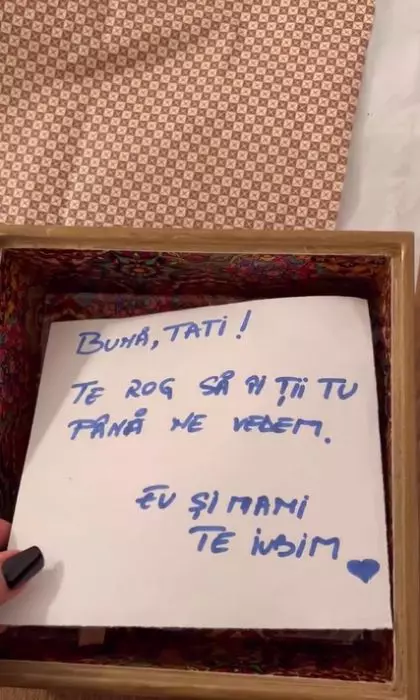 BUNĂ, TATI!
TE ROG SĂ ÎI ȚII TU
PÂNĂ NE VEDEM.
EU ȘI MAMI
TE IUBIM